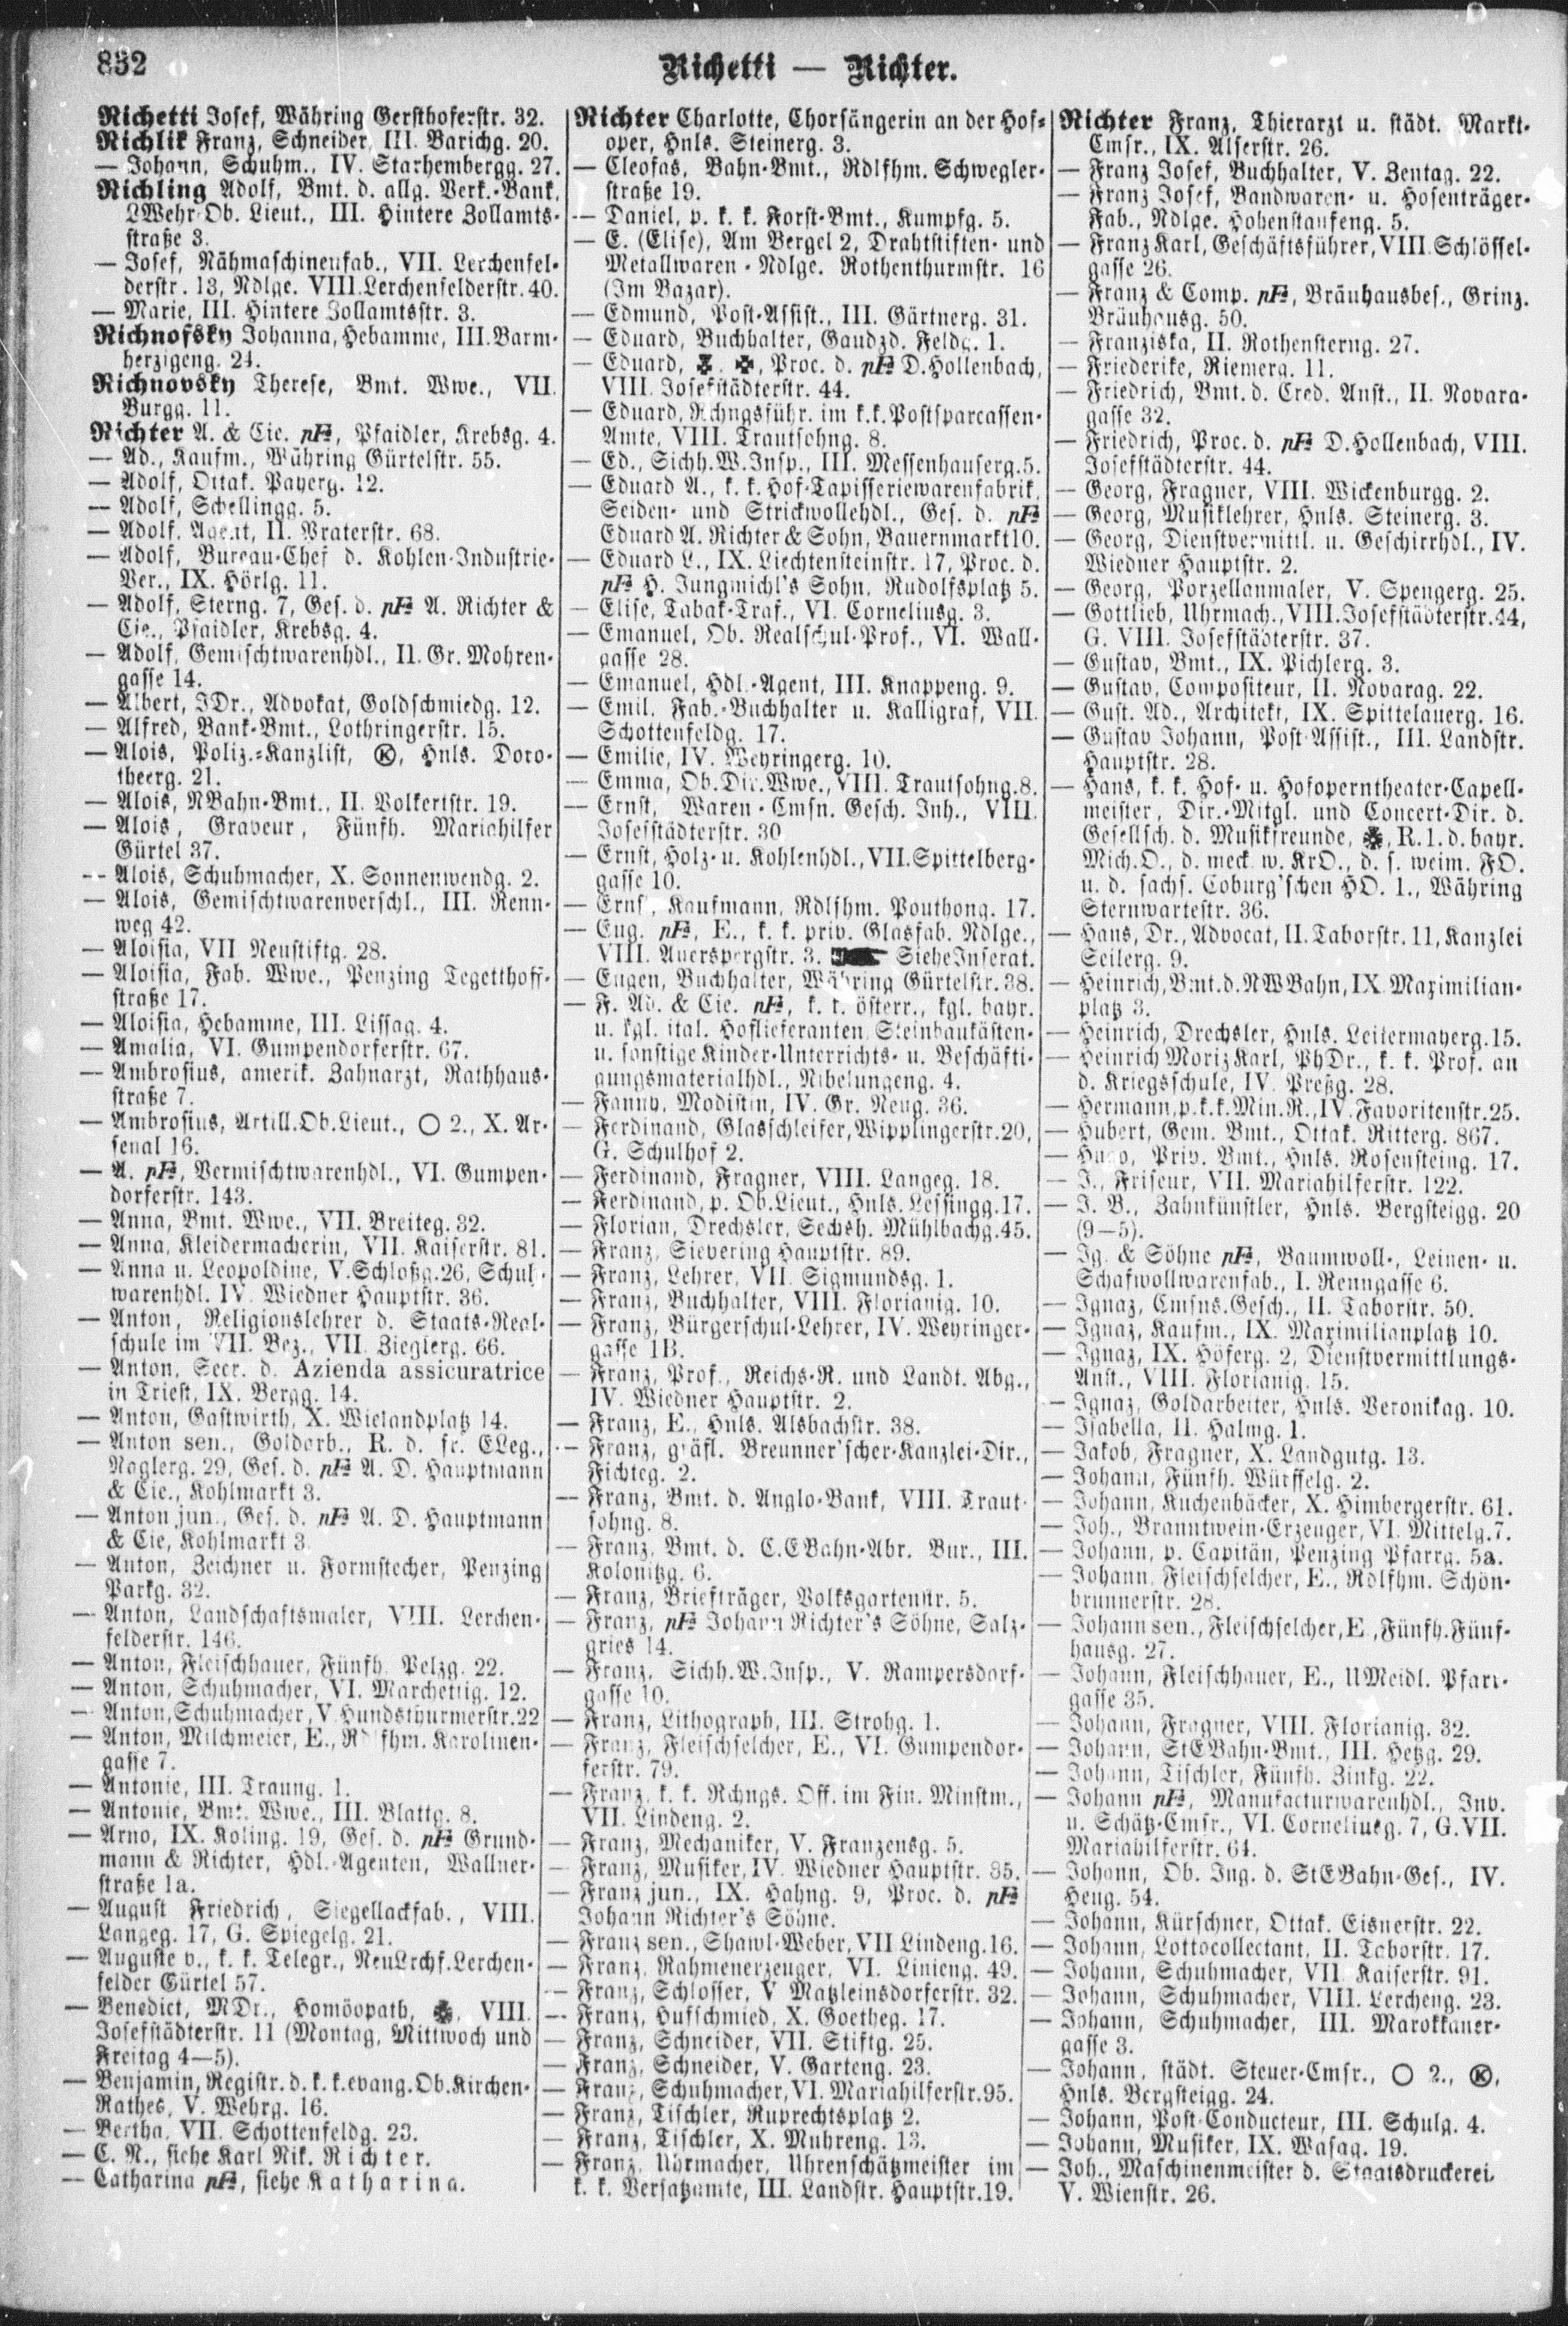 832
Richetti — Richter.
Richetti Josef, Währing Gersthoferstr. 32.
Richlik Franz, Schneider, III. Barichg. 20.
— Johann, Schuhm., IV. Starhembergg. 27.
Richling Adolf, Bmt. d. allg. Verk.-Bank,
LWehr-Ob. Lieut., III. Hintere Zollamts-
straße 3.
— Josef, Nähmaschinenfab., VII. Lerchenfel-
derstr. 13, Ndlge. VIII. Lerchenfelderstr. 40.
— Marie, III. Hintere Zollamtsstr. 3.
Richnofsky Johanna, Hebamme, III. Barm-
herzigeng. 24.
Richnovsky Therese, Bmt. Wwe., VII.
Burgg. 11.
Richter A. & Cie. pF, Pfaidler, Krebsg. 4.
— Ad., Kaufm., Währing Gürtelstr. 55.
— Adolf, Ottak. Payerg. 12.
— Adolf, Schellingg. 5.
— Adolf, Agent, II. Praterstr. 68.
— Adolf, Bureau-Chef d. Kohlen-Industrie-
Ver., IX. Hörlg. 11.
— Adolf, Sterng. 7, Ges. d. pF A. Richter &
Cie., Pfaidler, Krebsg. 4.
— Adolf, Gemischtwarenhdl., II. Gr. Mohren-
gasse 14.
— Albert, JDr., Advokat, Goldschmiedg. 12.
— Alfred, Bank-Bmt., Lothringerstr. 15.
— Alois, Poliz.-Kanzlist, Ⓚ, Hnls. Doro-
theerg. 21.
— Alois, NBahn-Bmt., II. Volkertstr. 19.
— Alois, Graveur, Fünfh. Mariahilfer
Gürtel 37.
— Alois, Schuhmacher, X. Sonnenwendg. 2.
— Alois, Gemischtwarenverschl., III. Renn-
weg 42.
— Aloisia, VII. Neustiftg. 28.
— Aloisia, Fab. Wwe., Penzing Tegetthoff-
straße 17.
— Aloisia, Hebamme, III. Lissag. 4.
— Amalia, VI. Gumpendorferstr. 67.
— Ambrosius, amerik. Zahnarzt, Rathhaus-
straße 7.
— Ambrosius, Artill. Ob. Lieut., ◯ 2., X. Ar-
senal 16.
— A. pF, Vermischtwarenhdl., VI. Gumpen-
dorferstr. 143.
— Anna, Bmt. Wwe., VII. Breiteg. 32.
— Anna, Kleidermacherin, VII. Kaiserstr. 81.
— Anna u. Leopoldine, V. Schloßg. 26, Schul-
warenhdl. IV. Wiedner Hauptstr. 36.
— Anton, Religionslehrer d. Staats-Real-
schule im VII. Bez., VII. Zieglerg. 66.
— Anton, Secr. d. Azienda assicuratrice
in Triest, IX. Bergg. 14.
— Anton, Gastwirth, X. Wielandplatz 14.
— Anton sen., Goldarb., R. d. fr. ELeg.,
Naglerg. 29, Ges. d. pF A. D. Hauptmann
& Cie., Kohlmarkt 3.
— Anton jun., Ges. d. pF A. D. Hauptmann
& Cie, Kohlmarkt 3
— Anton, Zeichner u. Formstecher, Penzing
Parkg. 32.
— Anton, Landschaftsmaler, VIII. Lerchen-
felderstr. 146.
— Anton, Fleischhauer, Fünfh. Pelzg. 22.
— Anton, Schuhmacher, VI. Marchettig. 12.
— Anton, Schuhmacher, V. Hundsthurmerstr. 22
— Anton, Milchmeier, E., Rdlfhm. Karolinen-
gasse 7.
— Antonie, III. Traung. 1.
— Antonie, Bmt. Wwe., III. Blattg. 8.
— Arno, IX. Koling. 19, Ges. d. pF Grund-
mann & Richter, Hdl.-Agenten, Wallner-
straße 1a.
— August Friedrich, Siegellackfab., VIII.
Langeg. 17, G. Spiegelg. 21.
— Auguste v., k. k. Telegr., NeuLrchf. Lerchen-
felder Gürtel 57.
— Benedict, MDr., Homöopath, ✠, VIII.
Josefstädterstr. 11 (Montag, Mittwoch und
Freitag 4—5).
— Benjamin, Registr. d. k. k. evang. Ob. Kirchen-
Rathes, V. Wehrg. 16.
— Bertha, VII. Schottenfeldg. 23.
— C. N., siehe Karl Nik. Richter.
— Catharina pF, siehe Katharina.
Richter Charlotte, Chorsängerin an der Hof-
oper, Hnls. Steinerg. 3.
— Cleofas, Bahn-Bmt., Rdlfhm. Schwegler-
straße 19.
— Daniel, p. k. k. Forst-Bmt., Kumpfg. 5.
— E. (Elise), Am Bergel 2, Drahtstiften- und
Metallwaren-Ndlge. Rothenthurmstr. 16
(Im Bazar).
— Edmund, Post-Assist., III. Gärtnerg. 31.
— Eduard, Buchhalter, Gaudzd. Feldg. 1.
— Eduard, ✠, ✠, Proc. d. pF D. Hollenbach,
VIII. Josefstädterstr. 44.
— Eduard, Rchngsführ. im k. k. Postsparcassen-
Amte, VIII. Trautsohng. 8.
— Ed., Sichh. W. Insp., III. Messenhauserg. 5.
— Eduard A., k. k. Hof-Tapisseriewarenfabrik,
Seiden- und Strickwollehdl., Ges. d. pF
Eduard A. Richter & Sohn, Bauernmarkt 10.
— Eduard L., IX. Liechtensteinstr. 17, Proc. d.
pF H. Jungmichl's Sohn, Rudolfsplatz 5.
— Elise, Tabak-Traf., VI. Corneliusg. 3.
— Emanuel, Ob. Realschul-Prof., VI. Wall-
gasse 28.
— Emanuel, Hdl.-Agent, III. Knappeng. 9.
— Emil, Fab.-Buchhalter u. Kalligraf, VII.
Schottenfeldg. 17.
— Emilie, IV. Weyringerg. 10.
— Emma, Ob. Dir. Wwe., VIII. Trautsohng. 8.
— Ernst, Waren-Cmsn. Gesch. Inh., VIII.
Josefstädterstr. 30
— Ernst, Holz- u. Kohlenhdl., VII. Spittelberg-
gasse 10.
— Ernst, Kaufmann, Rdlfhm. Pouthong. 17.
— Eug. pF, E., k. k. priv. Glasfab. Ndlge.,
VIII. Auerspergstr. 3. ☛ Siehe Inserat.
— Eugen, Buchhalter, Währing Gürtelstr. 38.
— F. Ad. & Cie. pF, k. k. österr., kgl. bayr.
u. kgl. ital. Hoflieferanten, Steinbaukästen-
u. sonstige Kinder-Unterrichts- u. Beschäfti-
gungsmaterialhdl., Nibelungeng. 4.
— Fanny, Modistin, IV. Gr. Neug. 36.
— Ferdinand, Glasschleifer, Wipplingerstr. 20,
G. Schulhof 2.
— Ferdinand, Fragner, VIII. Langeg. 18.
— Ferdinand, p. Ob. Lieut., Hnls. Lessingg. 17.
— Florian, Drechsler, Sechsh. Mühlbachg. 45.
— Franz, Sievering Hauptstr. 89.
— Franz, Lehrer, VII. Sigmundsg. 1.
— Franz, Buchhalter, VIII. Florianig. 10.
— Franz, Bürgerschul-Lehrer, IV. Weyringer-
gasse 1B.
— Franz, Prof., Reichs-R. und Landt. Abg.,
IV. Wiedner Hauptstr. 2.
— Franz, E., Hnls. Alsbachstr. 38.
— Franz, gräfl. Breunner'scher-Kanzlei-Dir.,
Fichteg. 2.
— Franz, Bmt. d. Anglo-Bank, VIII. Traut-
sohng. 8.
— Franz, Bmt. d. C.EBahn-Abr. Bur., III.
Kolonitzg. 6.
— Franz, Briefträger, Volksgartenstr. 5.
— Franz, pF Johann Richter's Söhne, Salz-
gries 14.
— Franz, Sichh. W. Insp., V. Rampersdorf-
gasse 10.
— Franz, Lithograph, III. Strohg. 1.
— Franz, Fleischselcher, E., VI. Gumpendor-
ferstr. 79.
— Franz, k. k. Rchngs. Off. im Fin. Minstm.,
VII. Lindeng. 2.
— Franz, Mechaniker, V. Franzensg. 5.
— Franz, Musiker, IV. Wiedner Hauptstr. 85.
— Franz jun., IX. Hahng. 9, Proc. d. pF
Johann Richter's Söhne.
— Franz sen., Shawl-Weber, VII Lindeng. 16.
— Franz, Rahmenerzeuger, VI. Linieng. 49.
— Franz, Schlosser, V Matzleinsdorferstr. 32.
— Franz, Hufschmied, X. Goetheg. 17.
— Franz, Schneider, VII. Stiftg. 25.
— Franz, Schneider, V. Garteng. 23.
— Franz, Schuhmacher, VI. Mariahilferstr. 95.
— Franz, Tischler, Ruprechtsplatz 2.
— Franz, Tischler, X. Muhreng. 13.
— Franz, Uhrmacher, Uhrenschätzmeister im
k. k. Versatzamte, III. Landstr. Hauptstr. 19.
Richter Franz, Thierarzt u. städt. Markt-
Cmsr., IX. Alserstr. 26.
— Franz Josef, Buchhalter, V. Zentag. 22.
— Franz Josef, Bandwaren- u. Hosenträger-
Fab., Ndlge. Hohenstaufeng. 5.
— Franz Karl, Geschäftsführer, VIII. Schlössel-
gasse 26.
— Franz & Comp. pF, Bräuhausbes., Grinz.
Bräuhausg. 50.
— Franziska, II. Rothensterng. 27.
— Friederike, Riemerg. 11.
— Friedrich, Bmt. d. Cred. Anst., II. Novara-
gasse 32.
— Friedrich, Proc. d. pF D. Hollenbach, VIII.
Josefstädterstr. 44.
— Georg, Fragner, VIII. Wickenburgg. 2.
— Georg, Musiklehrer, Hnls. Steinerg. 3.
— Georg, Dienstvermittl. u. Geschirrhdl., IV.
Wiedner Hauptstr. 2.
— Georg, Porzellanmaler, V. Spengerg. 25.
— Gottlieb, Uhrmach., VIII. Josefstädterstr. 44,
G. VIII. Josefstädterstr. 37.
— Gustav, Bmt., IX. Pichlerg. 3.
— Gustav, Compositeur, II. Novarag. 22.
— Gust. Ad., Architekt, IX. Spittelauerg. 16.
— Gustav Johann, Post-Assist., III. Landstr.
Hauptstr. 28.
— Hans, k. k. Hof- u. Hofoperntheater-Capell-
meister, Dir.-Mitgl. und Concert-Dir. d.
Gesellsch. d. Musikfreunde, ✠, R. 1. d. bayr.
Mich.O., d. meck. w. KrO., d. s. weim. FO.
u. d. sachs. Coburg'schen HO. 1., Währing
Sternwartestr. 36.
— Hans, Dr., Advocat, II. Taborstr. 11, Kanzlei
Seilerg. 9.
— Heinrich, Bmt. d. NWBahn, IX. Maximilian-
platz 3.
— Heinrich, Drechsler, Hnls. Leitermayerg. 15.
— Heinrich Moriz Karl, PhDr., k. k. Prof. an
d. Kriegsschule, IV. Preßg. 28.
— Hermann, p. k. k. Min. R., IV. Favoritenstr. 25.
— Hubert, Gem. Bmt., Ottak. Ritterg. 867.
— Hugo, Priv. Bmt., Hnls. Rosensteing. 17.
— J., Friseur, VII. Mariahilferstr. 122.
— J. B., Zahnkünstler, Hnls. Bergsteigg. 20
(9—5).
— Ig. & Söhne pF, Baumwoll-, Leinen- u.
Schafwollwarenfab., I. Renngasse 6.
— Ignaz, Cmsns. Gesch., II. Taborstr. 50.
— Ignaz, Kaufm., IX. Maximilianplatz 10.
— Ignaz, IX. Höferg. 2, Dienstvermittlungs-
Anst., VIII. Florianig. 15.
— Ignaz, Goldarbeiter, Hnls. Veronikag. 10.
— Isabella, II. Halmg. 1.
— Jakob, Fragner, X. Landgutg. 13.
— Johann, Fünfh. Würffelg. 2.
— Johann, Kuchenbäcker, X. Himbergerstr. 61.
— Joh., Branntwein-Erzeuger, VI. Mittelg. 7.
— Johann, p. Capitän, Penzing Pfarrg. 5a.
— Johann, Fleischselcher, E., Rdlfhm. Schön-
brunnerstr. 28.
— Johann sen., Fleischselcher, E., Fünfh. Fünf-
hausg. 27.
— Johann, Fleischhauer, E., UMeidl. Pfarr-
gasse 35.
— Johann, Fragner, VIII. Florianig. 32.
— Johann, StEBahn-Bmt., III. Hetzg. 29.
— Johann, Tischler, Fünfh. Zinkg. 22.
— Johann pF, Manufacturwarenhdl., Inv.
u. Schätz-Cmsr., VI. Corneliusg. 7, G. VII.
Mariahilferstr. 64.
— Johann, Ob. Ing. d. StEBahn-Ges., IV.
Heug. 54.
— Johann, Kürschner, Ottak. Eisnerstr. 22.
— Johann, Lottocollectant, II. Taborstr. 17.
— Johann, Schuhmacher, VII. Kaiserstr. 91.
— Johann, Schuhmacher, VIII. Lercheng. 23.
— Johann, Schuhmacher, III. Marokkaner-
gasse 3.
— Johann, städt. Steuer-Cmsr., ◯ 2., Ⓚ,
Hnls. Bergsteigg. 24.
— Johann, Post-Conducteur, III. Schulg. 4.
— Johann, Musiker, IX. Wasag. 19.
— Joh., Maschinenmeister d. Staatsdruckerei,
V. Wienstr. 26.